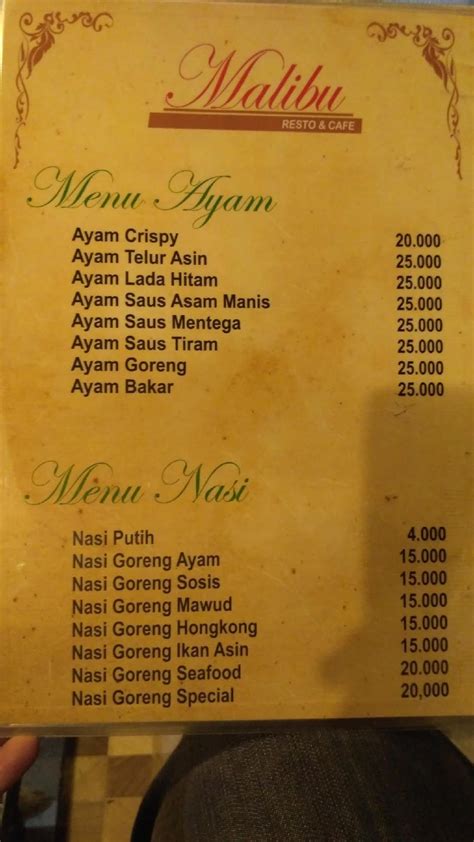 Malibu
RESTO & CAFE
Menu Ayam
Ayam Crispy 20.000
Ayam Telur Asin 25.000
Ayam Lada Hitam 25.000
Ayam Saus Asam Manis 25.000
Ayam Saus Mentega 25.000
Ayam Saus Tiram 25.000
Ayam Goreng 25.000
Ayam Bakar 25.000
Menu Nasi
Nasi Putih 4.000
Nasi Goreng Ayam 15.000
Nasi Goreng Sosis 15.000
Nasi Goreng Mawud 15.000
Nasi Goreng Hongkong 15.000
Nasi Goreng Ikan Asin 15.000
Nasi Goreng Seafood 20.000
Nasi Goreng Special 20,000